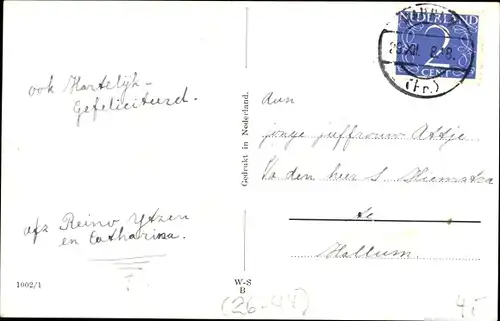 ook Hartelijk-
Gefeliciteerd.
afz Reino Ytzen
en Catharina.
1002/1
Gedrukt in Nederland.
W-S
B
(26-44)
NEDERLAND
2
CENT
(Fr.)
Aan
jonge juffrouw Attje
den heer S Hiemstra
te
Hallum.
45